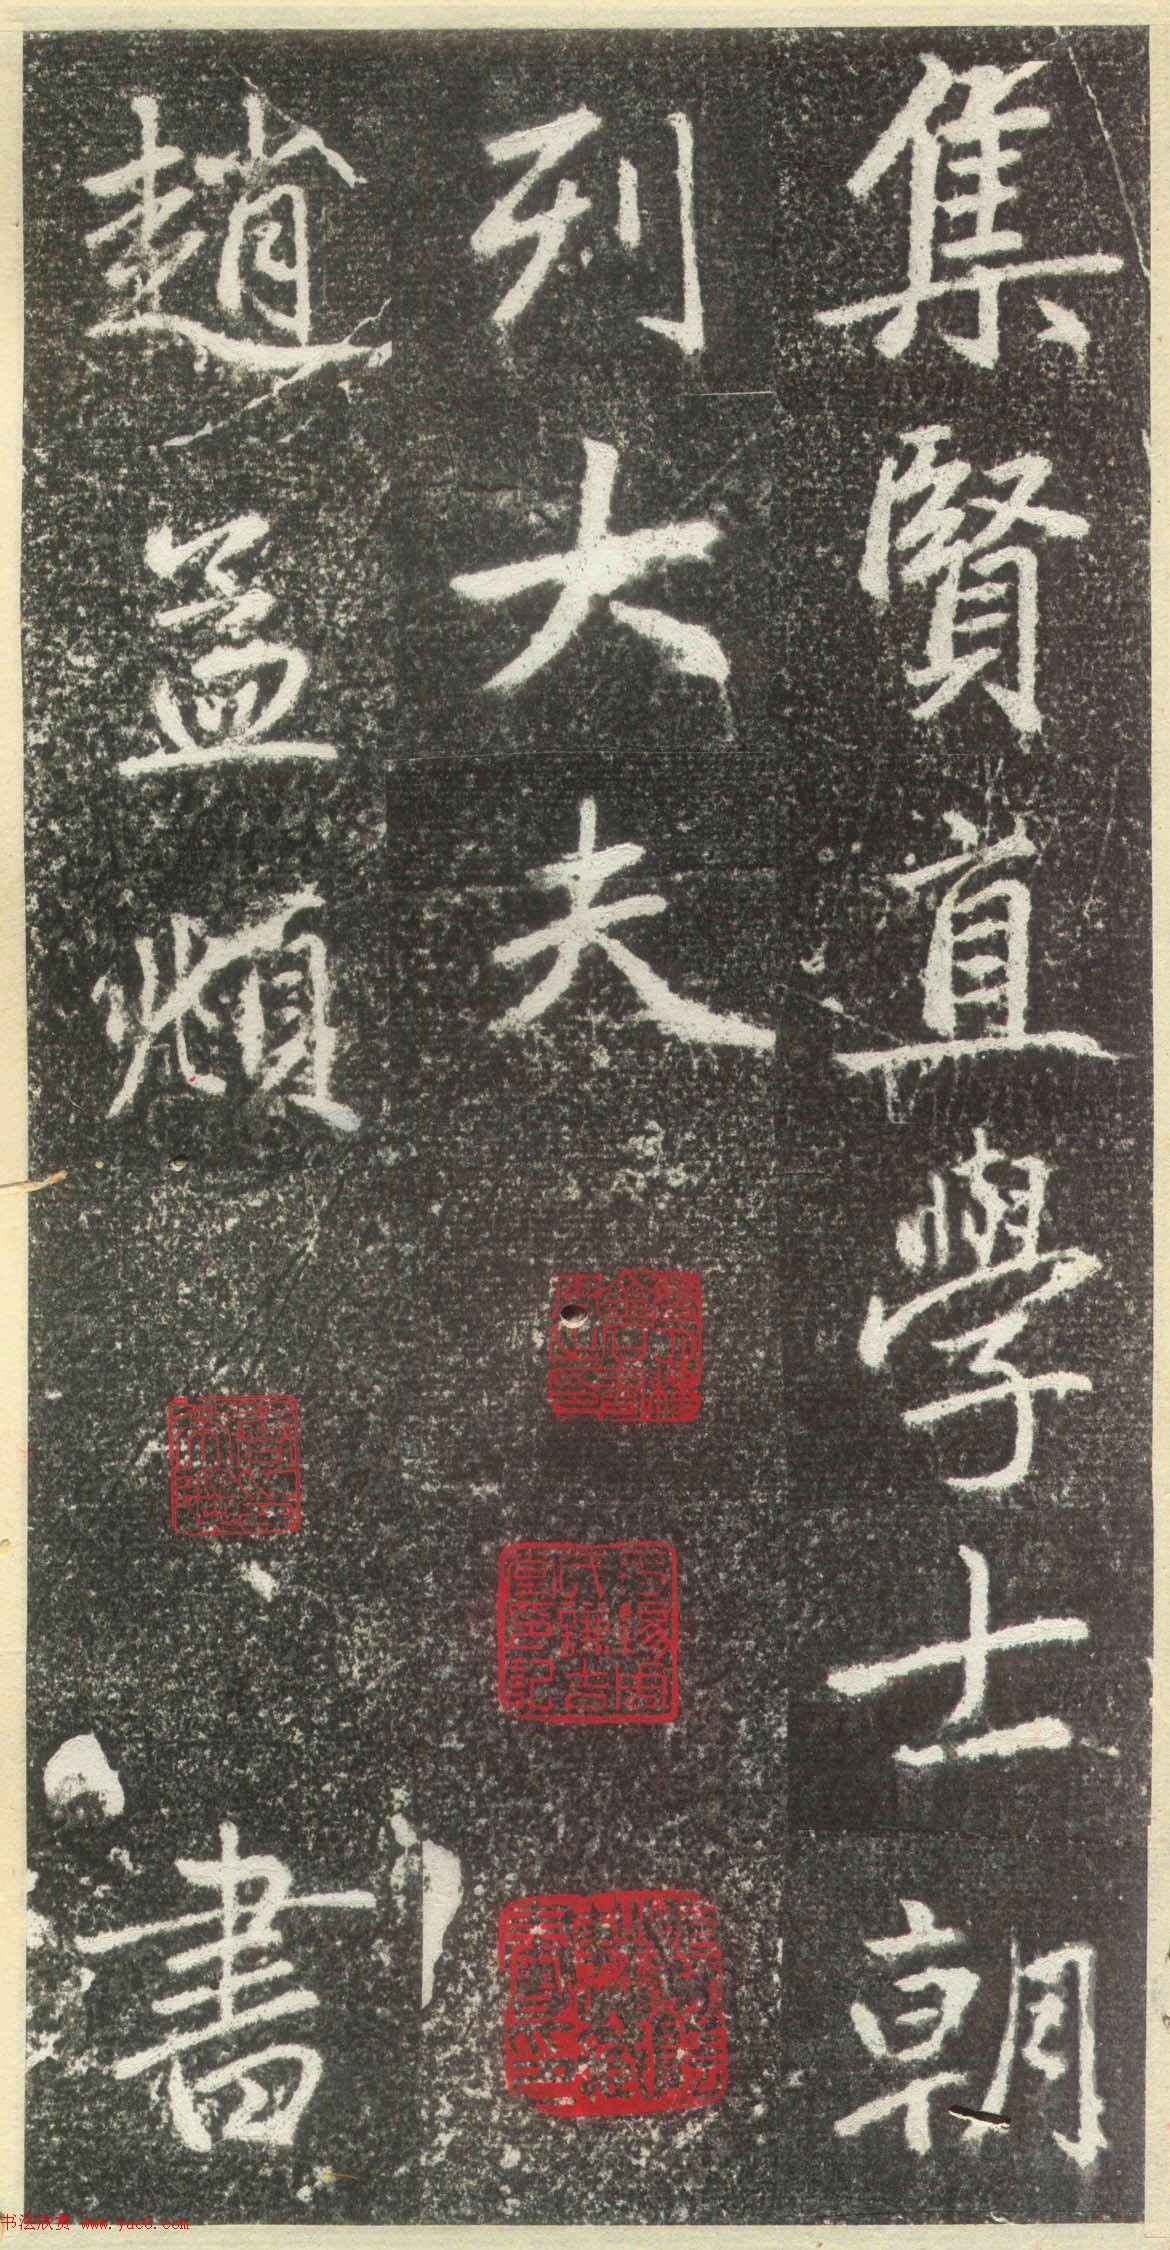 集賢直學士朝
列大夫
趙孟頫
書
书法欣赏 www.yac8.com